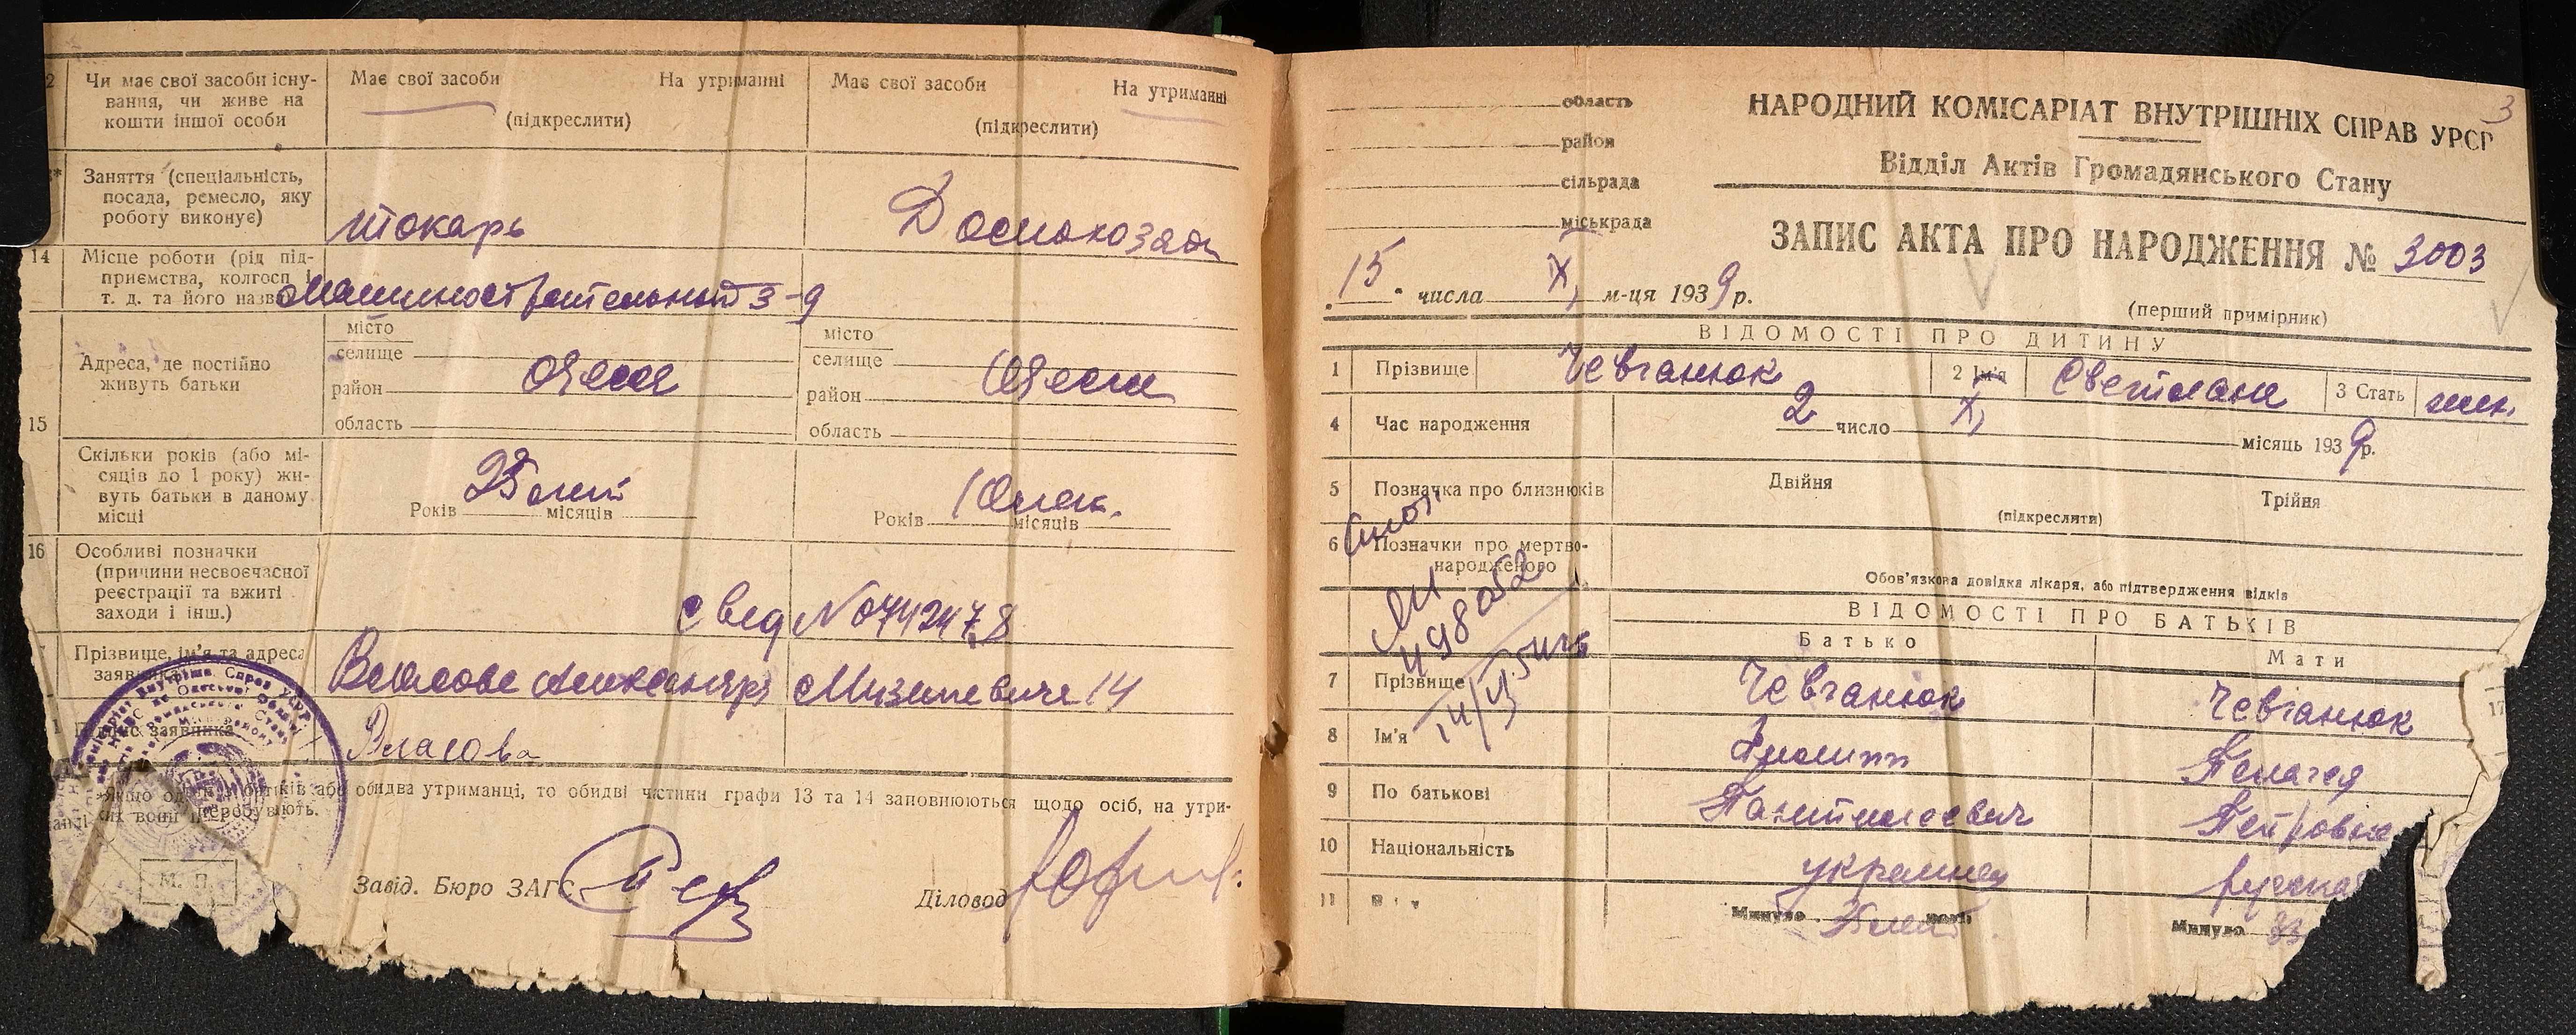 2 Чи має свої засоби існу-
вання, чи живе на
кошти іншої особи
Має свої засоби На утриманні
(підкреслити)
Має свої засоби На утриманні
(підкреслити)
Заняття (спеціальність,
посада, ремесло, яку
роботу виконує)
токарь
Домохоз
14 Місце роботи (рід під-
приємства, колгосп і
т. д. та його назва
Машиностроительный з-д
Адреса, де постійно
живуть батьки
місто
селище
район
область
Одесса
місто
селище
район
область
Одесса
15
Скільки років (або мі-
сяців до 1 року) жи-
вуть батьки в даному
місці
Років місяців
10 лет.
Років місяців
16 Особливі позначки
(причини несвоєчасної
реєстрації та вжиті
заходи і інш.)
свед № 0742478
Прізвище, ім'я та адреса
заявника
Власова Александра 14
Підпис заявника
Власова
*Якщо один з батьків або обидва утриманці, то обидві частини графи 13 та 14 заповнюються щодо осіб, на утри-
манні яких вони перебувають.
М. П.
Завід. Бюро ЗАГС
Діловод
3
область
район
сільрада
міськрада
НАРОДНИЙ КОМІСАРІАТ ВНУТРІШНІХ СПРАВ УРСР
Відділ Актів Громадянського Стану
ЗАПИС АКТА ПРО НАРОДЖЕННЯ № 3003
15 числа XI м-ця 1939 р.
(перший примірник)
ВІДОМОСТІ ПРО ДИТИНУ
1 Прізвище Чевганюк 2 Ім'я Светлана 3 Стать жен.
4 Час народження 2 число XI місяць 1939 р.
5 Позначка про близнюків Двійня Трійня
(підкреслити)
6 Позначки про мертво-
народженого
Обов'язкова довідка лікаря, або підтвердження відків
498052
ВІДОМОСТІ ПРО БАТЬКІВ
Батько Мати
7 Прізвище Чевганюк Чевганюк
17
8 Ім'я Филипп Пелагея
9 По батькові Пантилеевич Петровна
10 Національність украинец русская
11 Минуло років Минуло 33